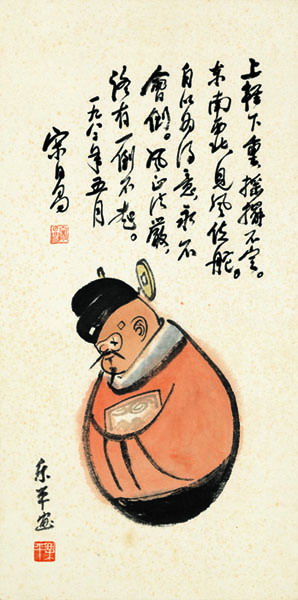 上轻下重,摇擺不定。
东南西北,見风使舵。
自以为得意,永不
會倒。风正法嚴,
终有一倒不起。
一九八〇年五月
宋日昌
乐平画